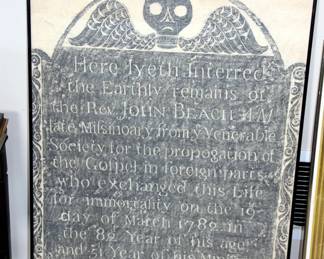 Here lyeth Interred
the Earthly remains of
the Rev. JOHN BEACH A.M
late Miſsinoary from y Venerable
Society for the propogation of
the Goſpel in foreign parts
who exchanged this Life
for immortality on the 19
day of March 1782 in
the 82 Year of his age
and 51 Year of his